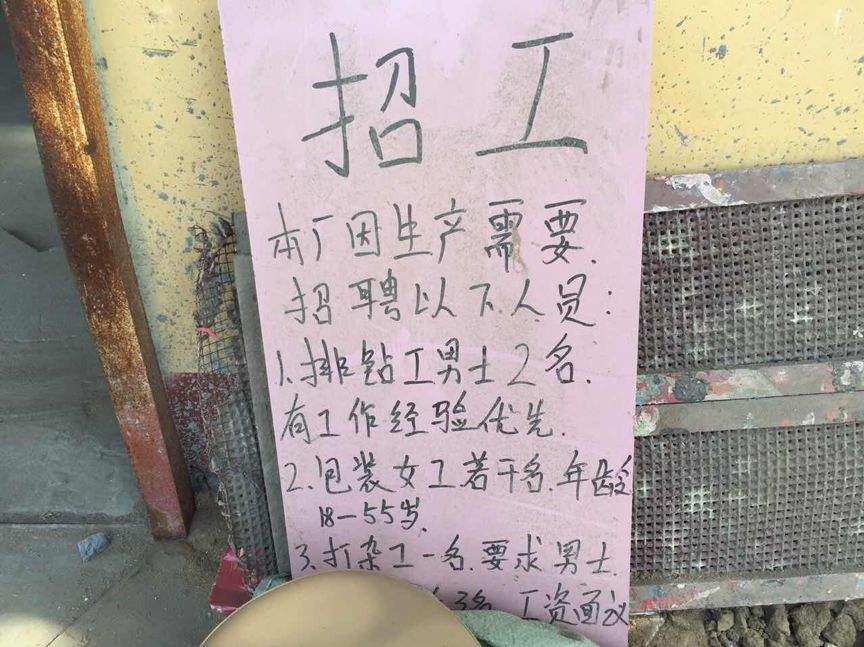 招工
本厂因生产需要.
招聘以下人员:
1.排钻工男士2名.
有工作经验优先.
2.包装女工若干名.年龄
18-55岁.
3.打杂工一名.要求男士.
名 工资面议